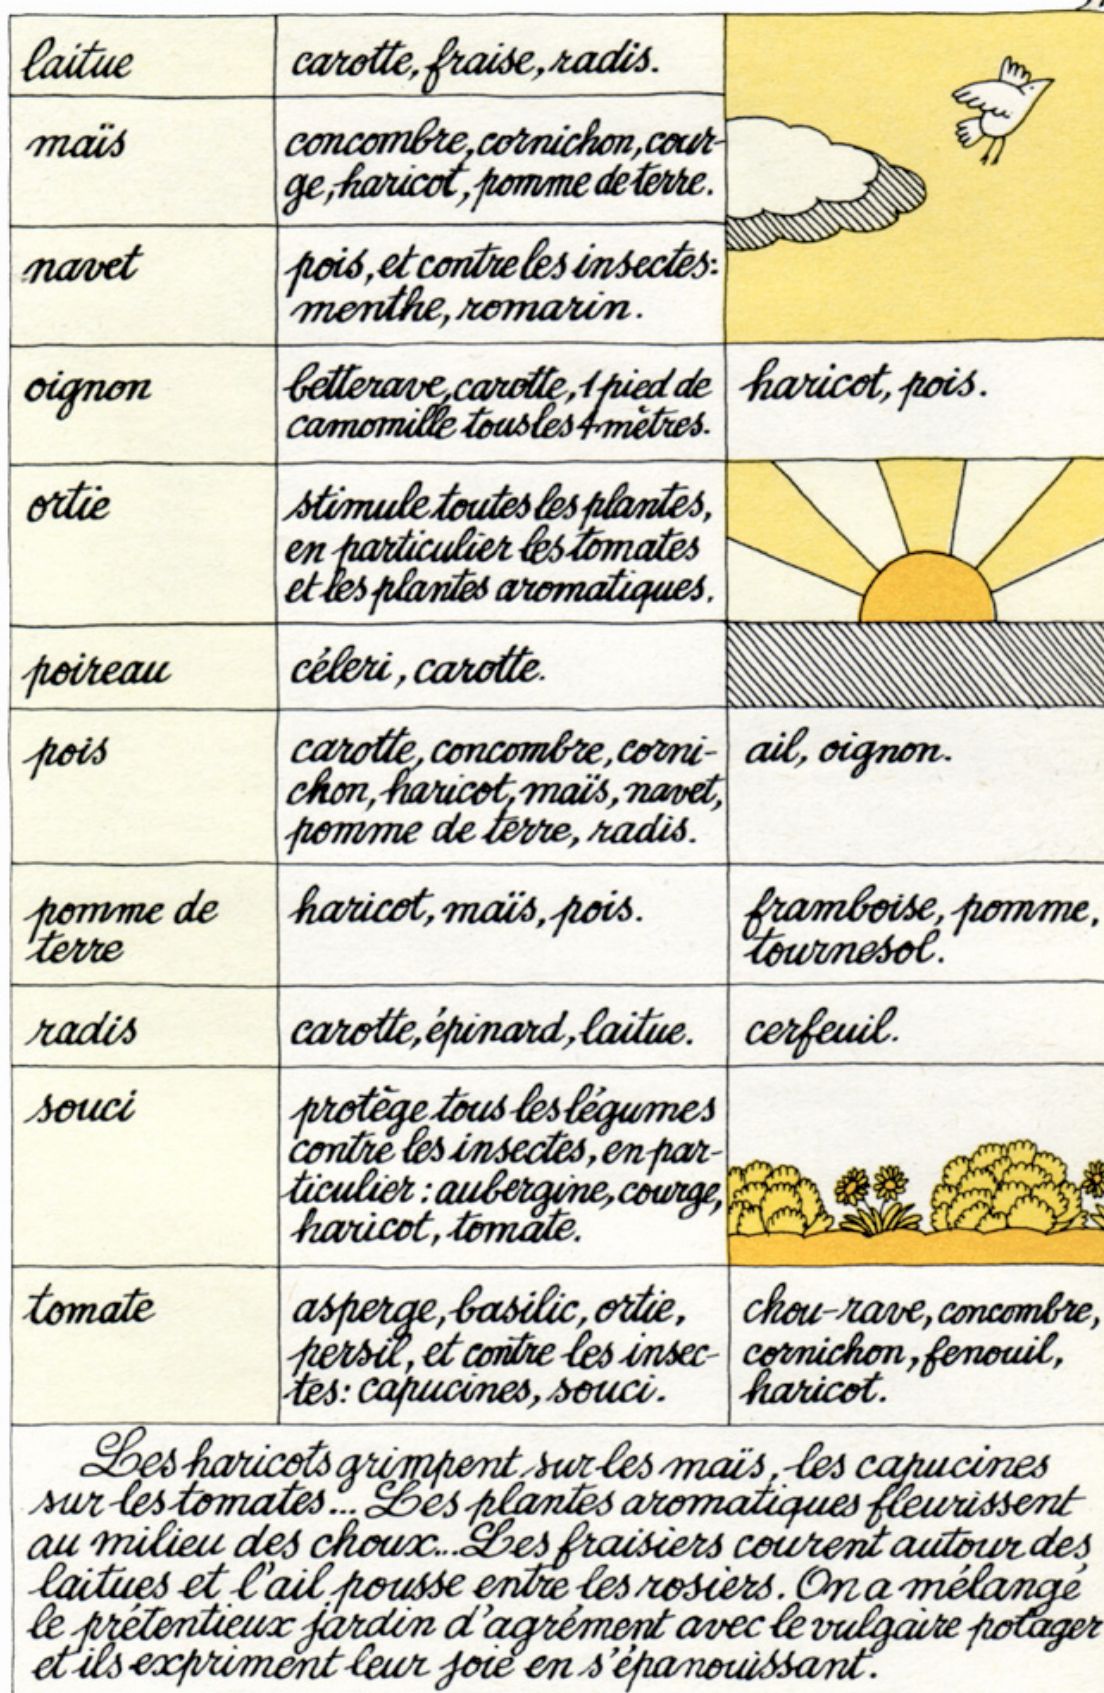 laitue
carotte, fraise, radis.
maïs
concombre, cornichon, cour-
ge, haricot, pomme de terre.
navet
pois, et contre les insectes:
menthe, romarin.
oignon
betterave, carotte, 1 pied de
camomille tous les 4 mètres.
haricot, pois.
ortie
stimule toutes les plantes,
en particulier les tomates
et les plantes aromatiques.
poireau
céleri, carotte.
pois
carotte, concombre, corni-
chon, haricot, maïs, navet,
pomme de terre, radis.
ail, oignon.
pomme de
terre
haricot, maïs, pois.
framboise, pomme,
tournesol.
radis
carotte, épinard, laitue.
cerfeuil.
souci
protège tous les légumes
contre les insectes, en par-
ticulier : aubergine, courge,
haricot, tomate.
tomate
asperge, basilic, ortie,
persil, et contre les insec-
tes: capucines, souci.
chou-rave, concombre,
cornichon, fenouil,
haricot.
Les haricots grimpent sur les maïs, les capucines
sur les tomates... Les plantes aromatiques fleurissent
au milieu des choux... Les fraisiers courent autour des
laitues et l'ail pousse entre les rosiers. On a mélangé
le prétentieux jardin d'agrément avec le vulgaire potager
et ils expriment leur joie en s'épanouissant.